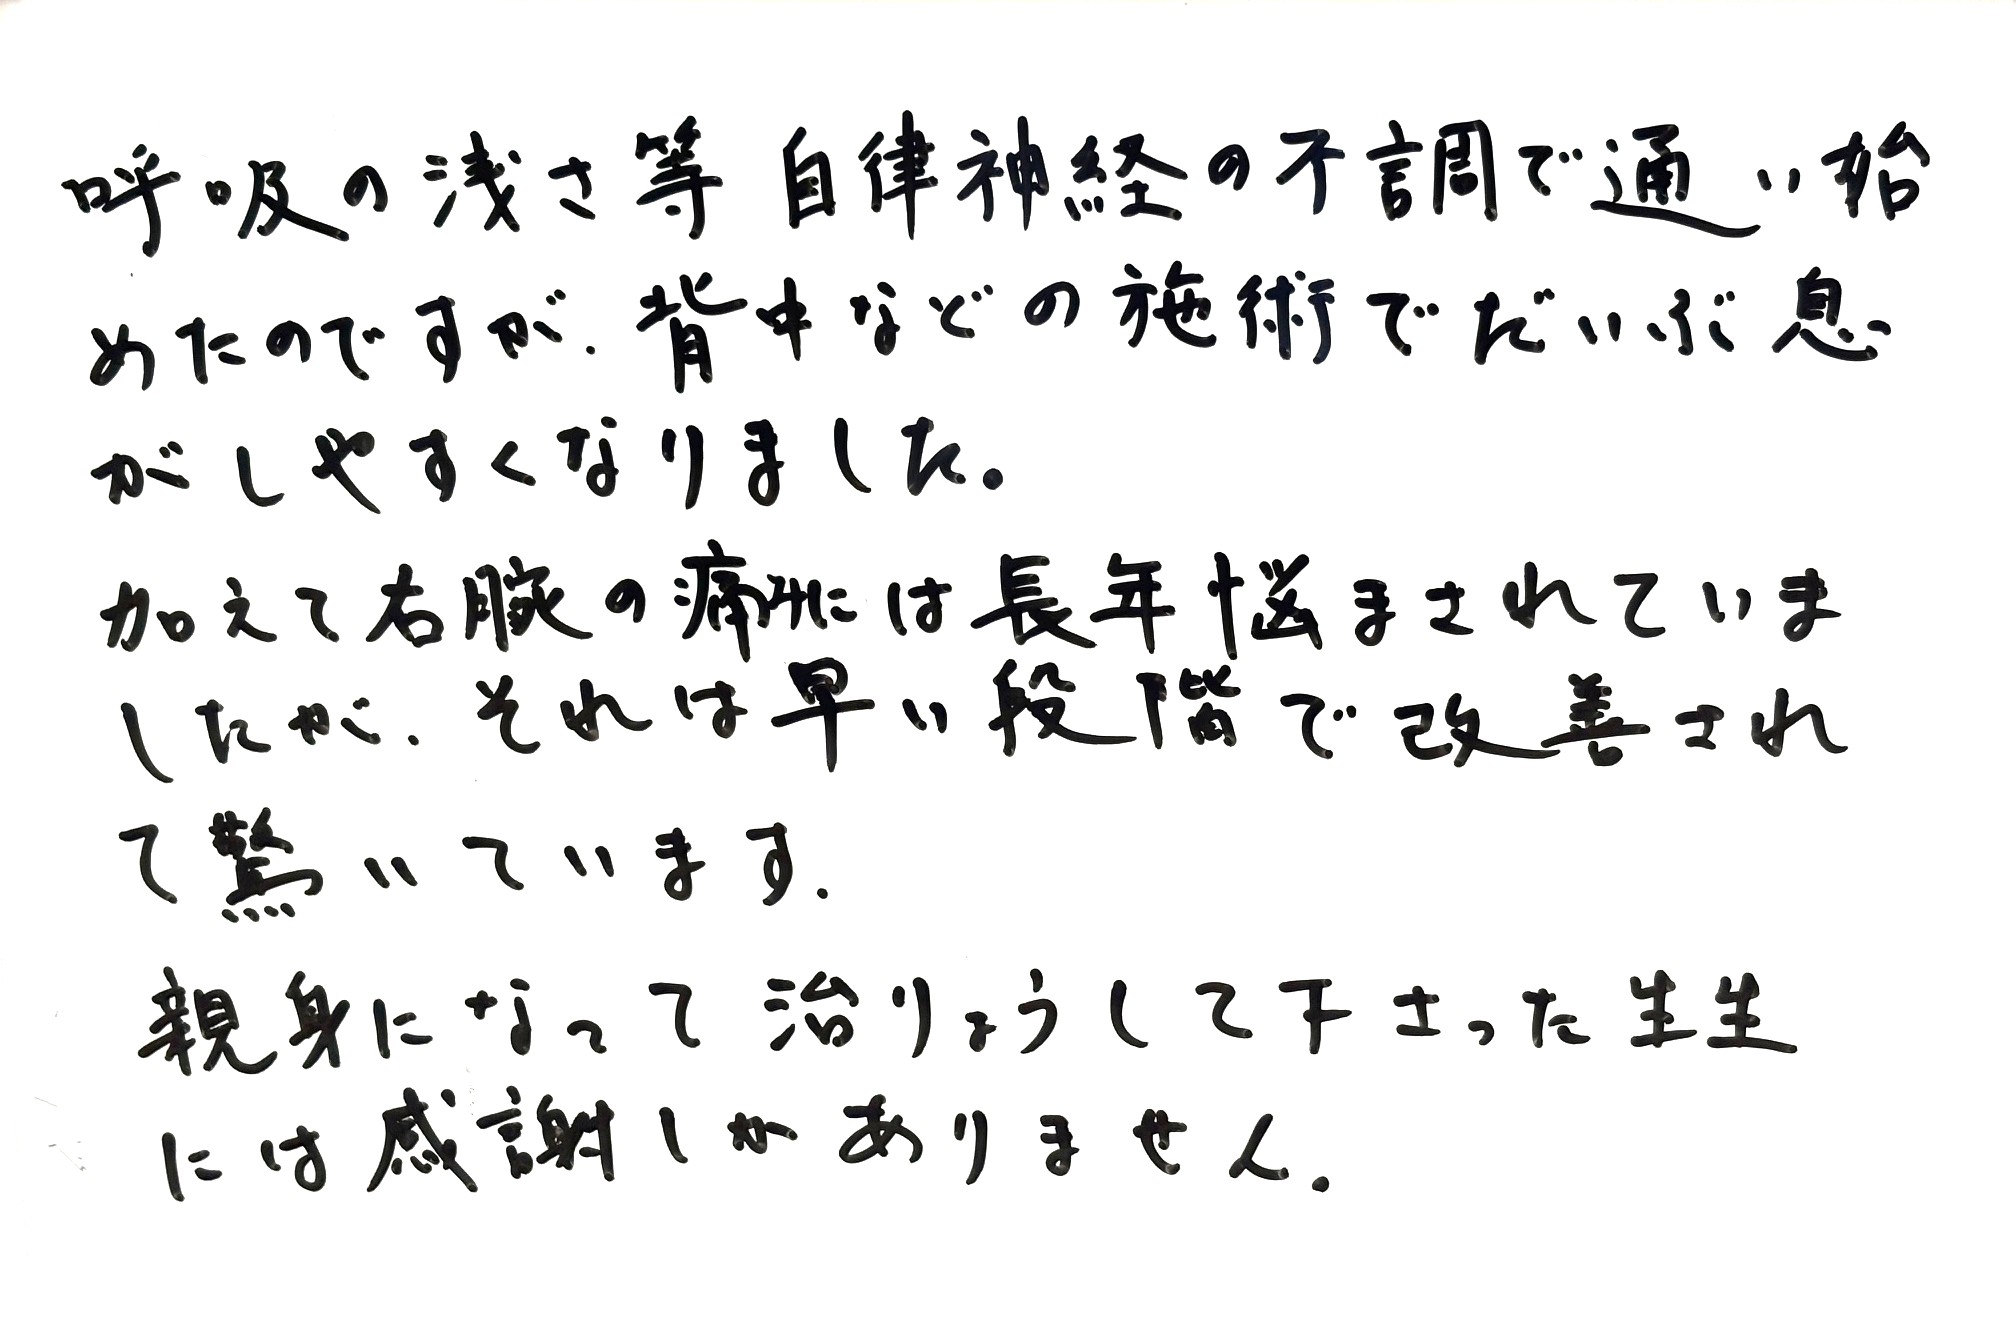 呼吸の浅さ等 自律神経の不調で通い始
めたのですが、背中などの施術でだいぶ息
がしやすくなりました。
加えて右腕の痛みには長年悩まされていま
したが、それは早い段階で改善され
て驚いています。
親身になって治りょうして下さった先生
には感謝しかありません。